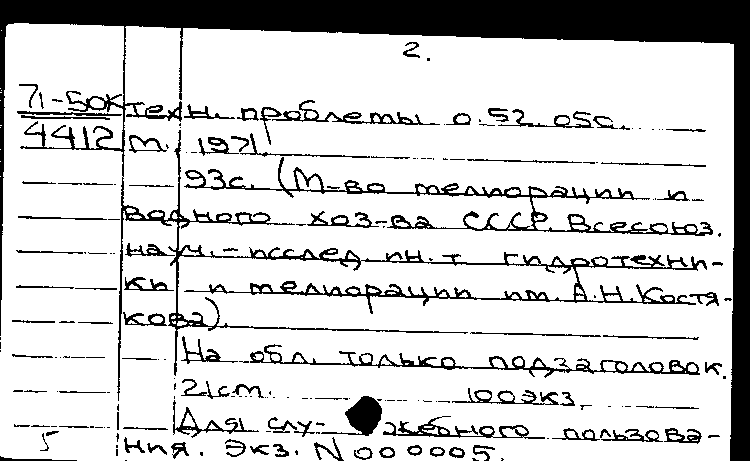 2.
71-50к техн. проблемы 0.52.050.
4412 М., 1971.
93с. (М-во мелиорации и
водного хоз-ва СССР. Всесоюз.
науч.-исслед. ин.т гидротехни-
ки и мелиорации им. А.Н.Костя-
кова).
На обл. только подзаголовок.
21см. 100экз.
Для слу-жебного пользова-
5 ния. Экз. N 000005.